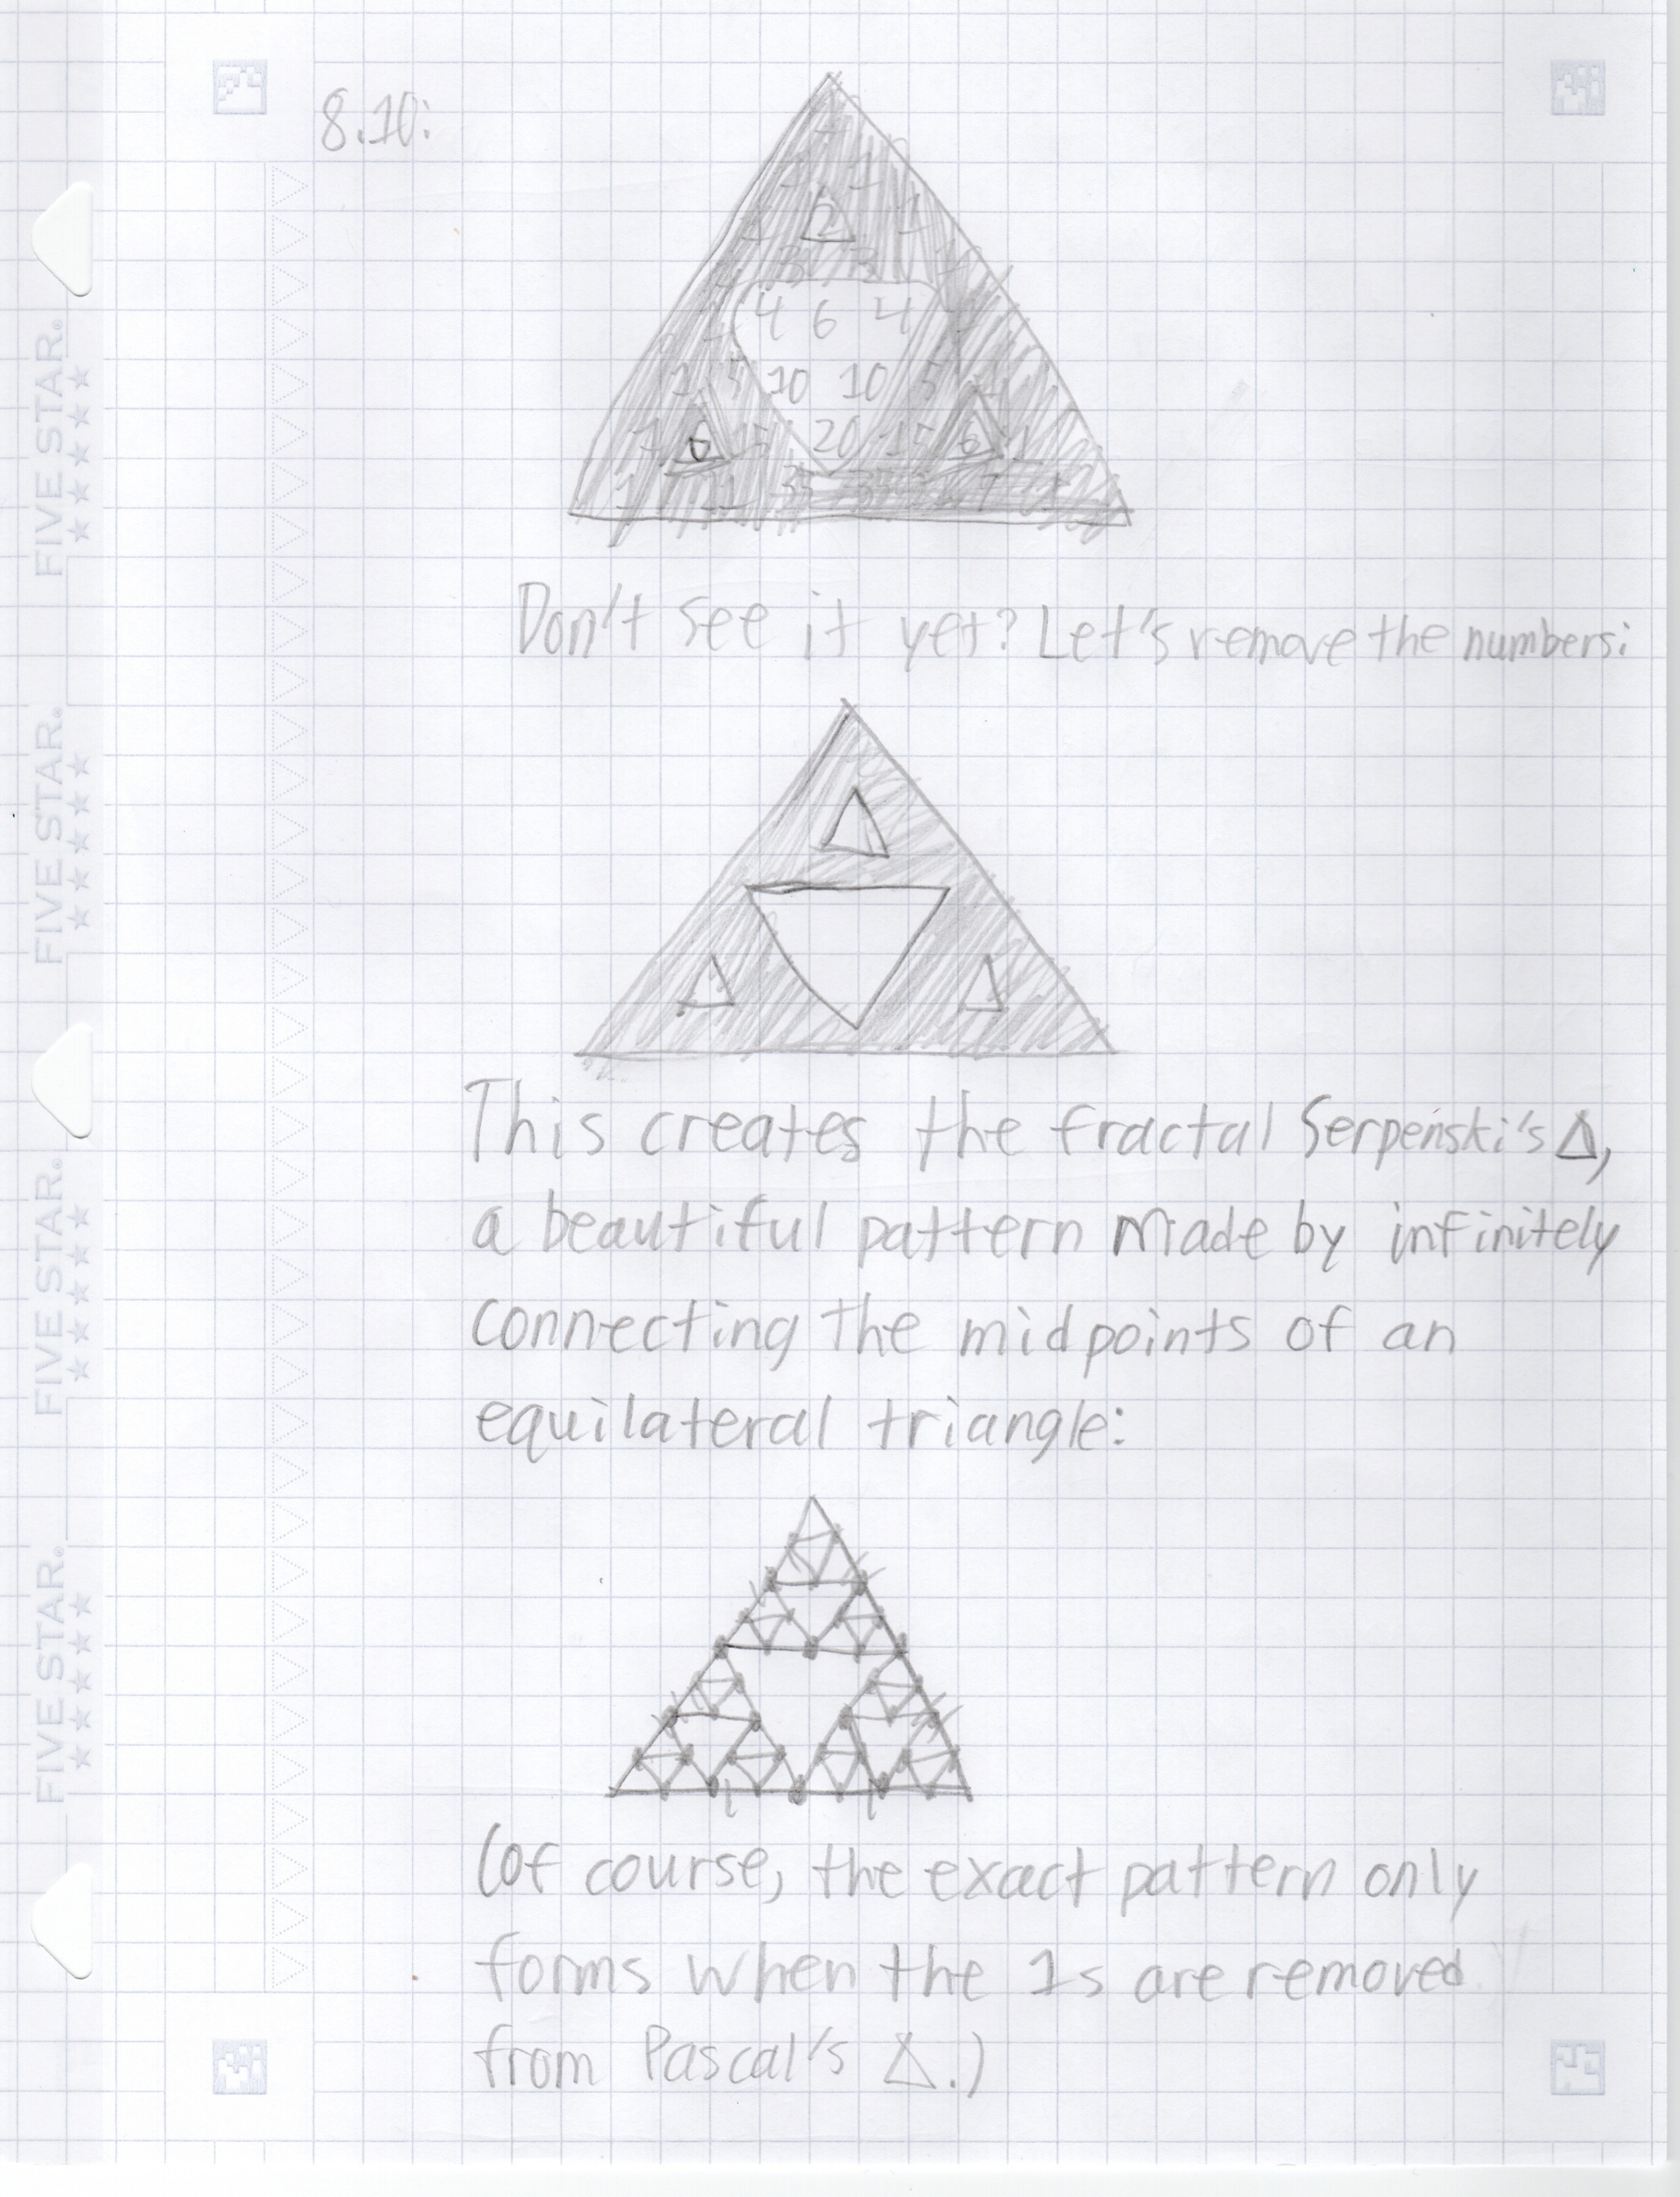 8.10:
1
1 1
1 2 1
1 3 3 1
1 4 6 4 1
1 5 10 10 5 1
1 6 15 20 15 6 1
1 7 21 35 35 7 1
Don't see it yet? Let's remove the numbers:
This creates the fractal Serpenski's Δ,
a beautiful pattern made by infinitely
connecting the midpoints of an
equilateral triangle:
(of course, the exact pattern only
forms when the 1s are removed
from Pascal's Δ.)
FIVE STAR.
FIVE STAR.
FIVE STAR.
FIVE STAR.